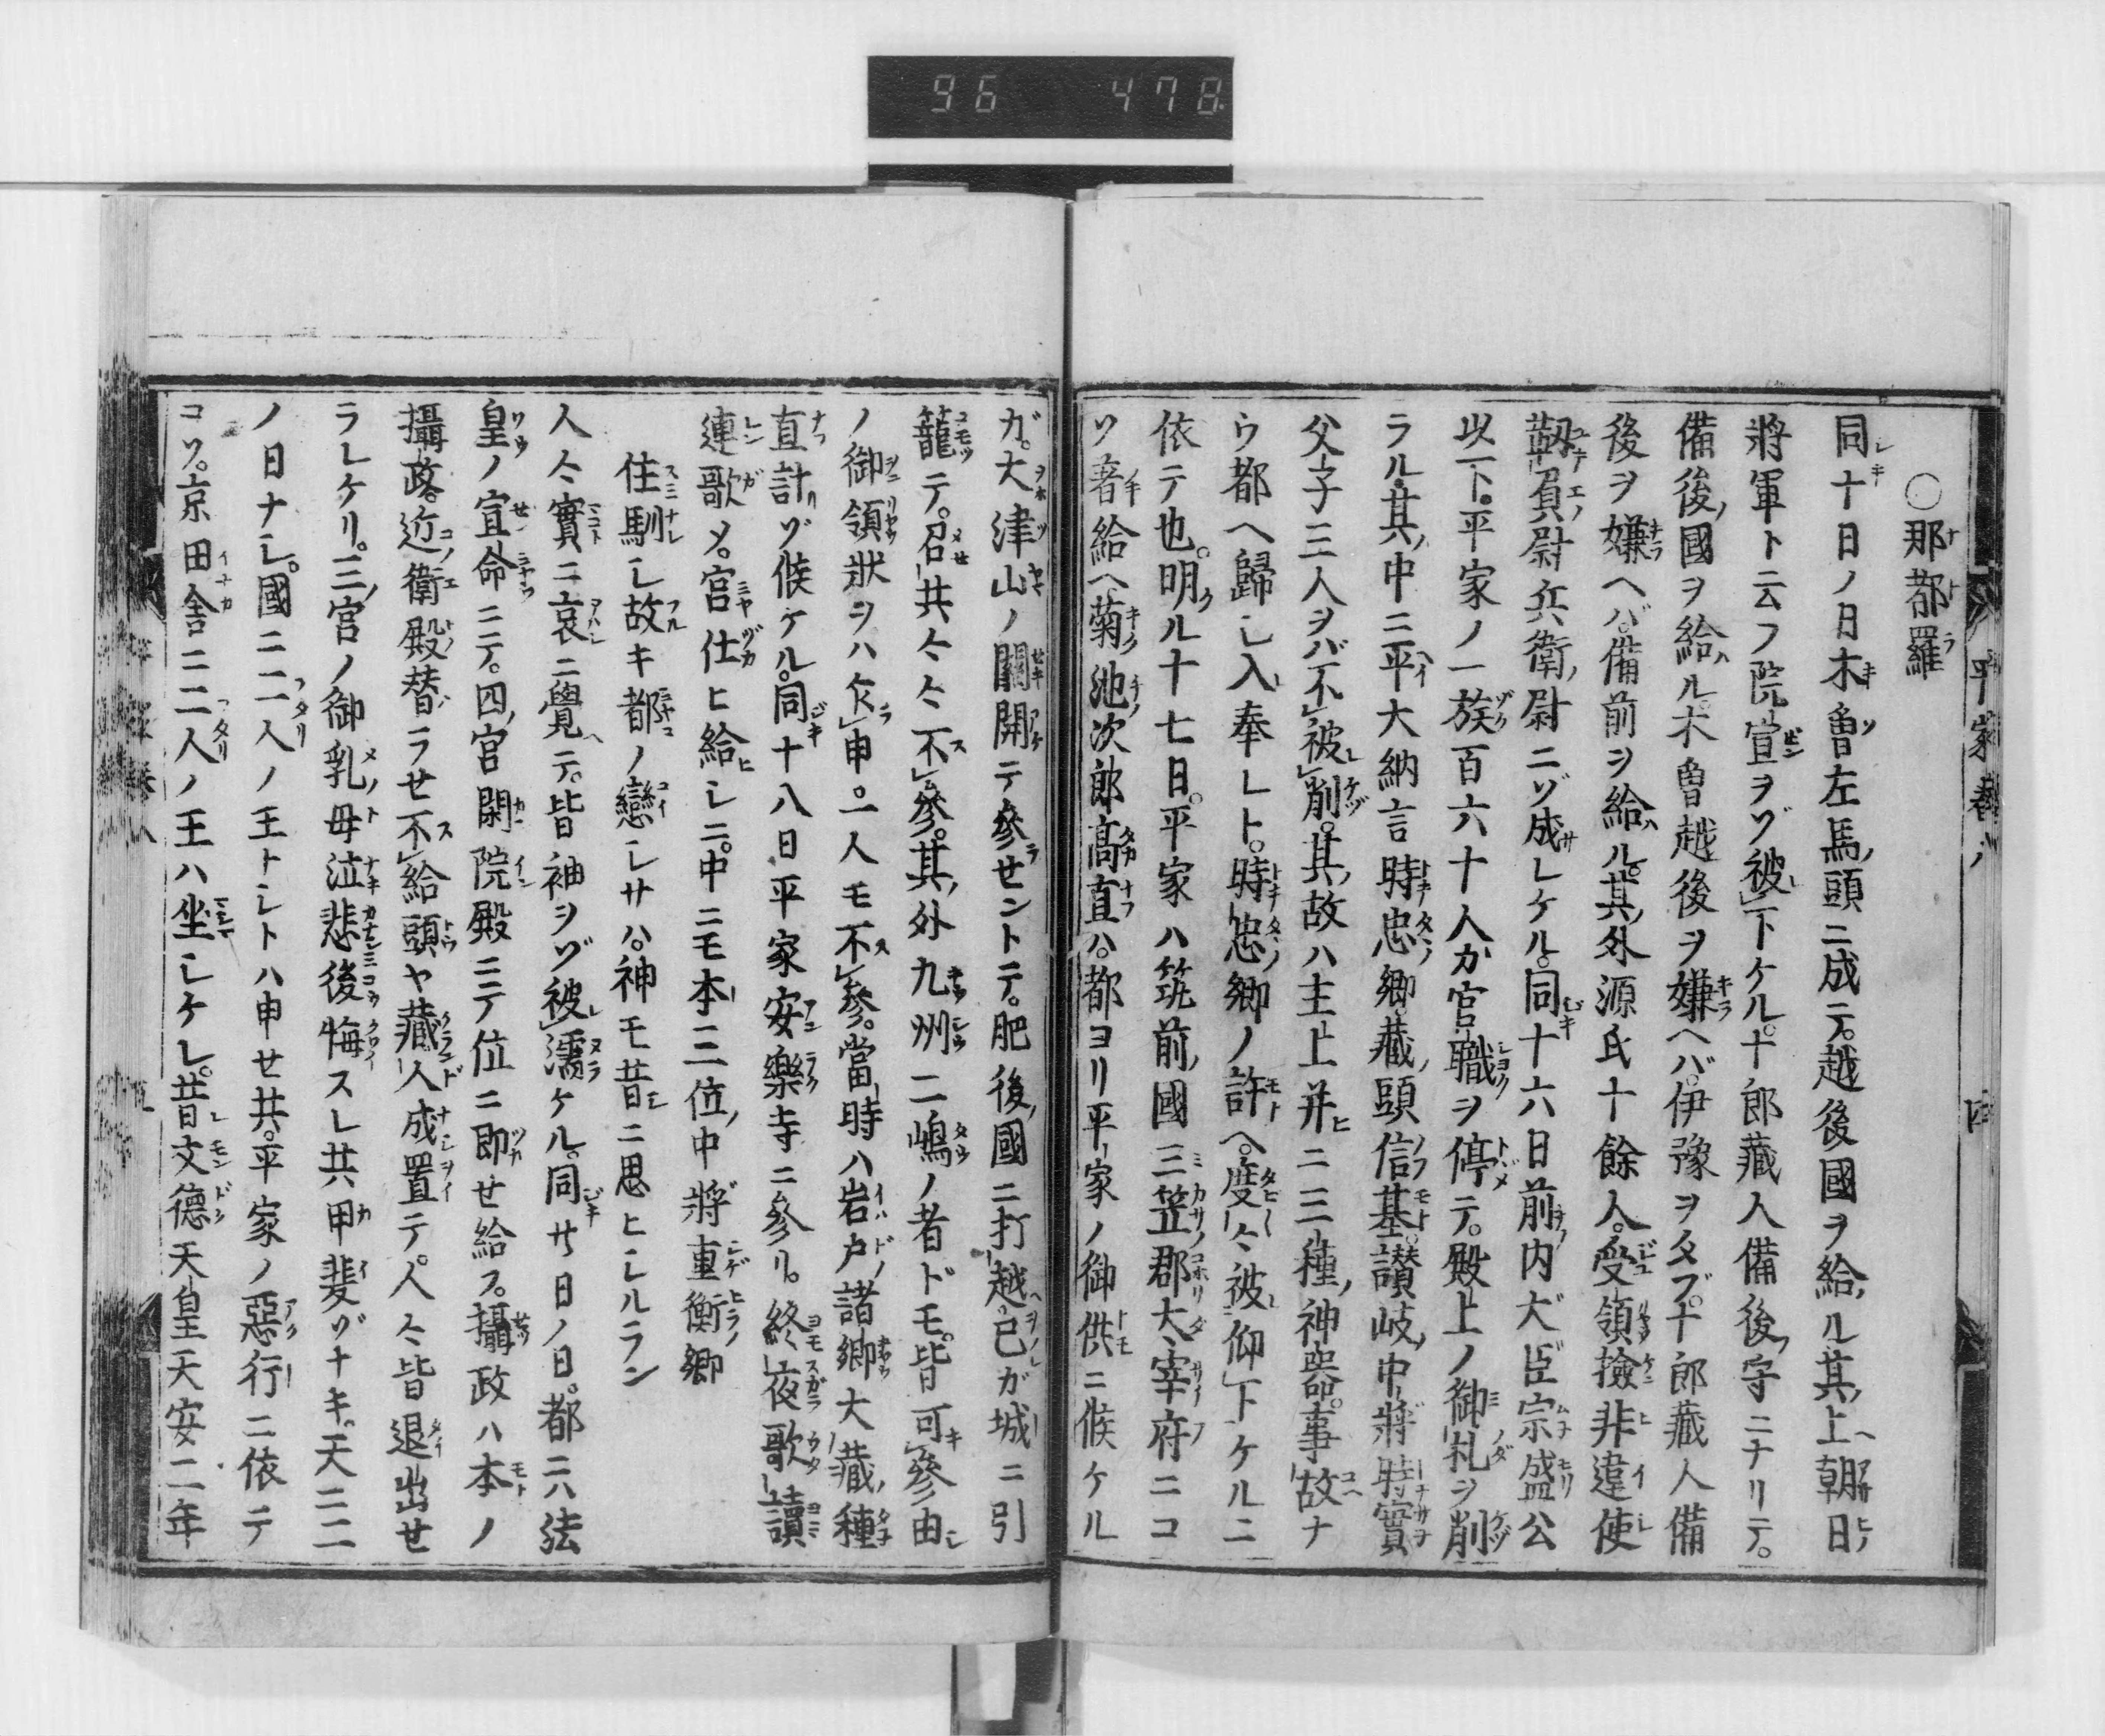 96 478
○那都羅
同十日ノ日木曽左馬頭ニ成テ。越後國ヲ給ル。其上朝日
將軍ト云フ院宣ヲゾ被下ケル。十郎藏人備後守ニナリテ。
備後國ヲ給ル。木曽越後ヲ嫌ヘバ。伊豫ヲタブ。十郎藏人備
後ヲ嫌ヘバ。備前ヲ給ル。其外源氏十餘人。受領撿非違使
靱負尉兵衛尉ニゾ成レケル。同十六日前内大臣宗盛公
以下。平家ノ一族百六十人カ官職ヲ停テ。殿上ノ御札ヲ削
ラル。其中ニ平大納言時忠卿。藏頭信基。讃岐中將時實
父子三人ヲバ不被削。其故ハ主上并ニ三種神器。事故ナ
ウ都ヘ歸シ入奉レト。時忠卿ノ許ヘ。度々被仰下ケルニ
依テ也。明ル十七日。平家ハ筑前國三笠郡大宰府ニコ
ソ著給ヘ菊池次郎高直ハ。都ヨリ平家ノ御供ニ候ケル
ガ。大津山ノ關開テ參セントテ。肥後國ニ打越。己ガ城ニ引
籠テ。召共々々不參。其外九州二嶋ノ者ドモ。皆可參由
ノ御領狀ヲハ乍申。一人モ不參。當時ハ岩戸諸卿大藏種
直計ゾ候ケル。同十八日平家安樂寺ニ參リ。終夜歌讀
連歌メ。宮仕ヒ給ヒシニ。中ニモ本三位中將重衡卿
住馴シ故キ都ノ戀シサハ。神モ昔ニ思ヒシルラン
人々實ニ哀ニ覺テ。皆袖ヲゾ被濡ケル。同廿日ノ日。都ニハ法
皇ノ宣命ニテ。四宮閑院殿ニテ位ニ即せ給フ。攝政ハ本ノ
攝政。近衛殿替ラせ不給頭ヤ藏人成置テ。人々皆退出せ
ラレケリ。三宮ノ御乳母泣悲後悔スレ共甲斐ゾナキ。天ニ二
ノ日ナシ。國ニ二人ノ王トシトハ申せ共。平家ノ惡行ニ依テ
コソ。京田舎ニ二人ノ王ハ坐シケレ。昔文德天皇天安二年
平家巻八 四